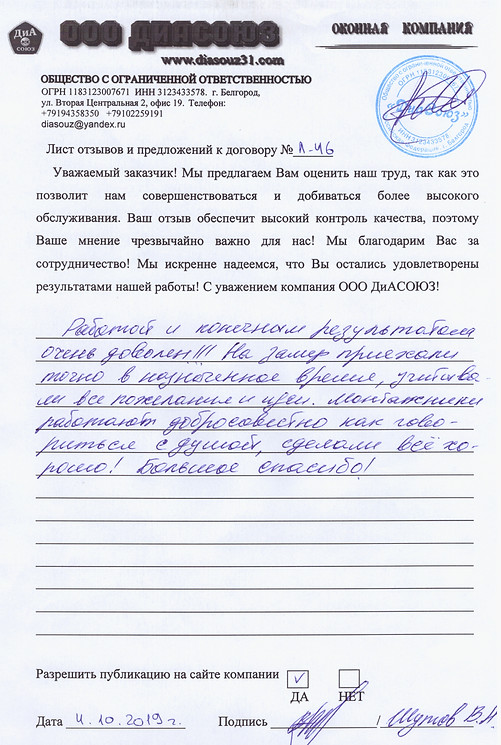 ДиА
СОЮЗ
ООО ДИАСОЮЗ
ОКОННАЯ КОМПАНИЯ
www.diasouz31.com
ОБЩЕСТВО С ОГРАНИЧЕННОЙ ОТВЕТСТВЕННОСТЬЮ
ОГРН 1183123007671 ИНН 3123433578. г. Белгород,
ул. Вторая Центральная 2, офис 19. Телефон:
+79194358350 +79102259191
diasouz@yandex.ru
Лист отзывов и предложений к договору № Л-46
Уважаемый заказчик! Мы предлагаем Вам оценить наш труд, так как это
позволит нам совершенствоваться и добиваться более высокого
обслуживания. Ваш отзыв обеспечит высокий контроль качества, поэтому
Ваше мнение чрезвычайно важно для нас! Мы благодарим Вас за
сотрудничество! Мы искренне надеемся, что Вы остались удовлетворены
результатами нашей работы! С уважением компания ООО ДиАСОЮЗ!
Работой и конечным результатом
очень доволен!!! На замер приехали
точно в назначенное время, учитыва-
ли все пожелания и идеи. Монтажники
работают добросовестно как гово-
риться с душой, сделали всё хо-
рошо! Большое спасибо!
Разрешить публикацию на сайте компании
ДА НЕТ
Дата 4.10.2019г. Подпись / Шутов В.Н.